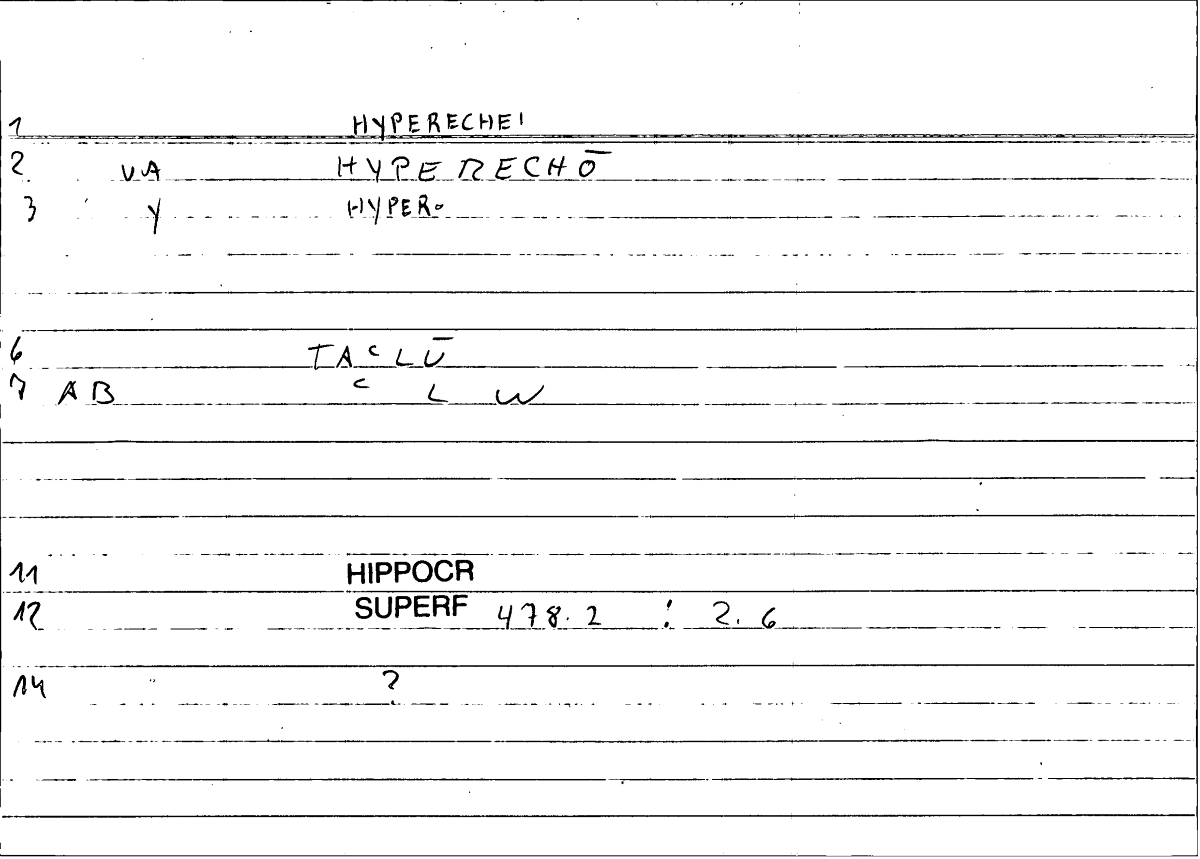 1 HYPERECHEI
2. VA HYPERECHŌ
3 Y HYPER-
6 TA C LŪ
7 AB C L W
11 HIPPOCR
12 SUPERF 478.2 : 2.6
14 ?